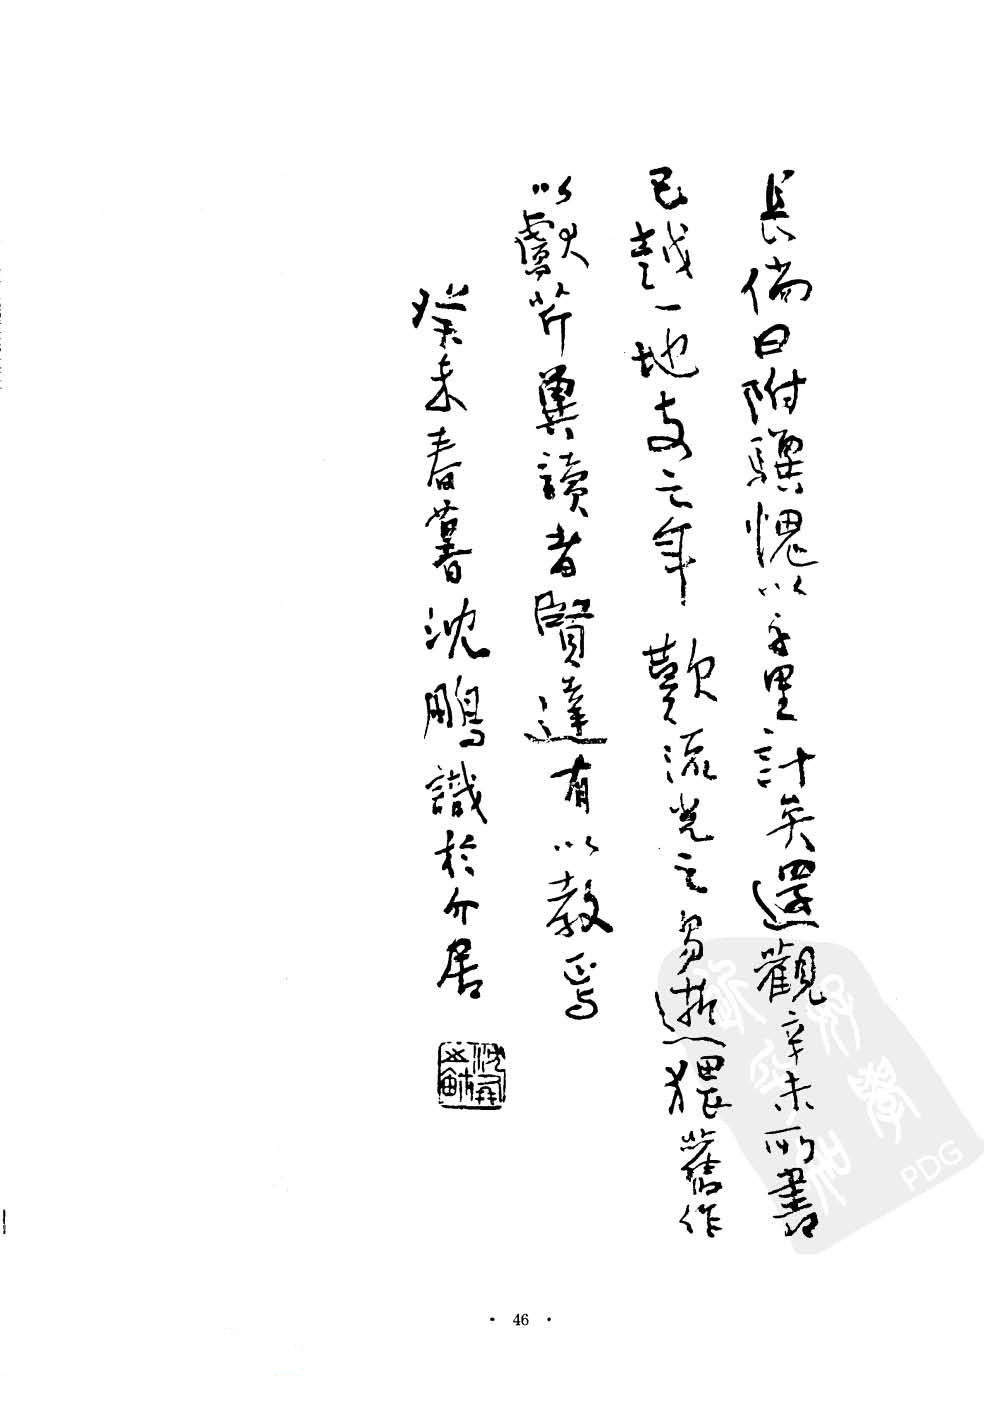 長倘曰附驥愧以千里計矣還觀辛未所書
已越一地支之年歎流光之易逝猥舊作
以獻芹冀讀者賢達有以教焉
癸未春暮沈鵬識於介居
· 46 ·
PDG